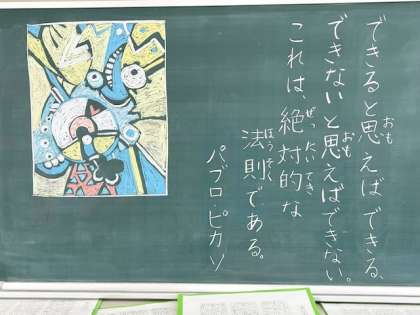 できると思えばできる、
できないと思えばできない。
これは、絶対的な
法則である。
パブロ・ピカソ